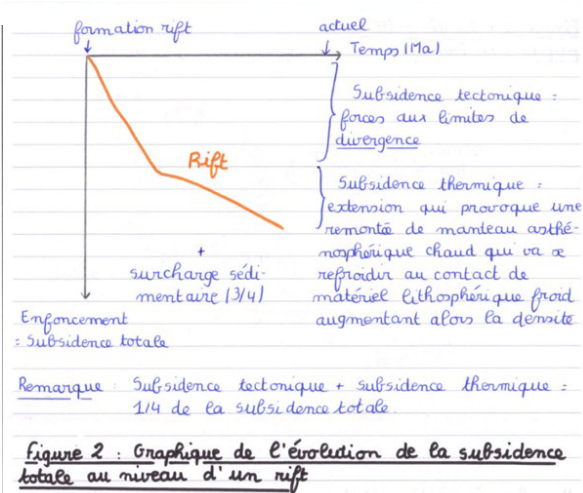 formation rift
actuel
Temps (Ma)
Subsidence tectonique :
forces aux limites de
divergence
Rift
Subsidence thermique :
extension qui provoque une
remontée de manteau asthé-
nosphérique chaud qui va se
refroidir au contact de
matériel lithosphérique froid
augmentant alors la densité
+
surcharge sédi-
mentaire (3/4)
Enfoncement
= Subsidence totale
Remarque : Subsidence tectonique + subsidence thermique =
1/4 de la subsidence totale.
Figure 2 : Graphique de l'évolution de la subsidence
totale au niveau d'un rift